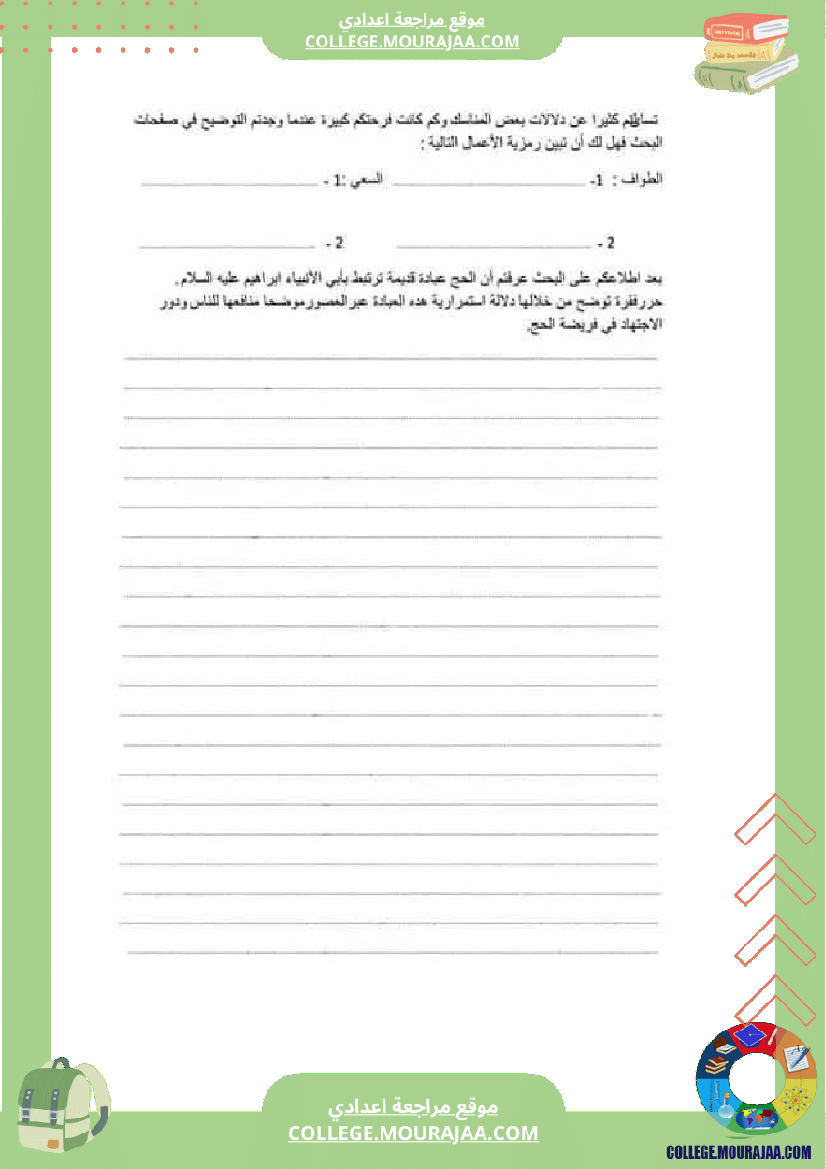 موقع مراجعة اعدادي
COLLEGE.MOURAJAA.COM
تساءلتم كثيرا عن دلالات بعض المناسك وكم كانت فرحتكم كبيرة عندما وجدتم التوضيح في صفحات
البحث فهل لك أن تبين رمزية الأعمال التالية :
الطواف : 1- السعي :1 -
2 - 2 -
بعد اطلاعكم على البحث عرفتم أن الحج عبادة قديمة ترتبط بأبي الأنبياء ابراهيم عليه السلام .
حرر فقرة توضح من خلالها دلالة استمرارية هذه العبادة عبر العصور موضحا منافعها للناس ودور
الاجتهاد في فريضة الحج.
موقع مراجعة اعدادي
COLLEGE.MOURAJAA.COM
COLLEGE.MOURAJAA.COM